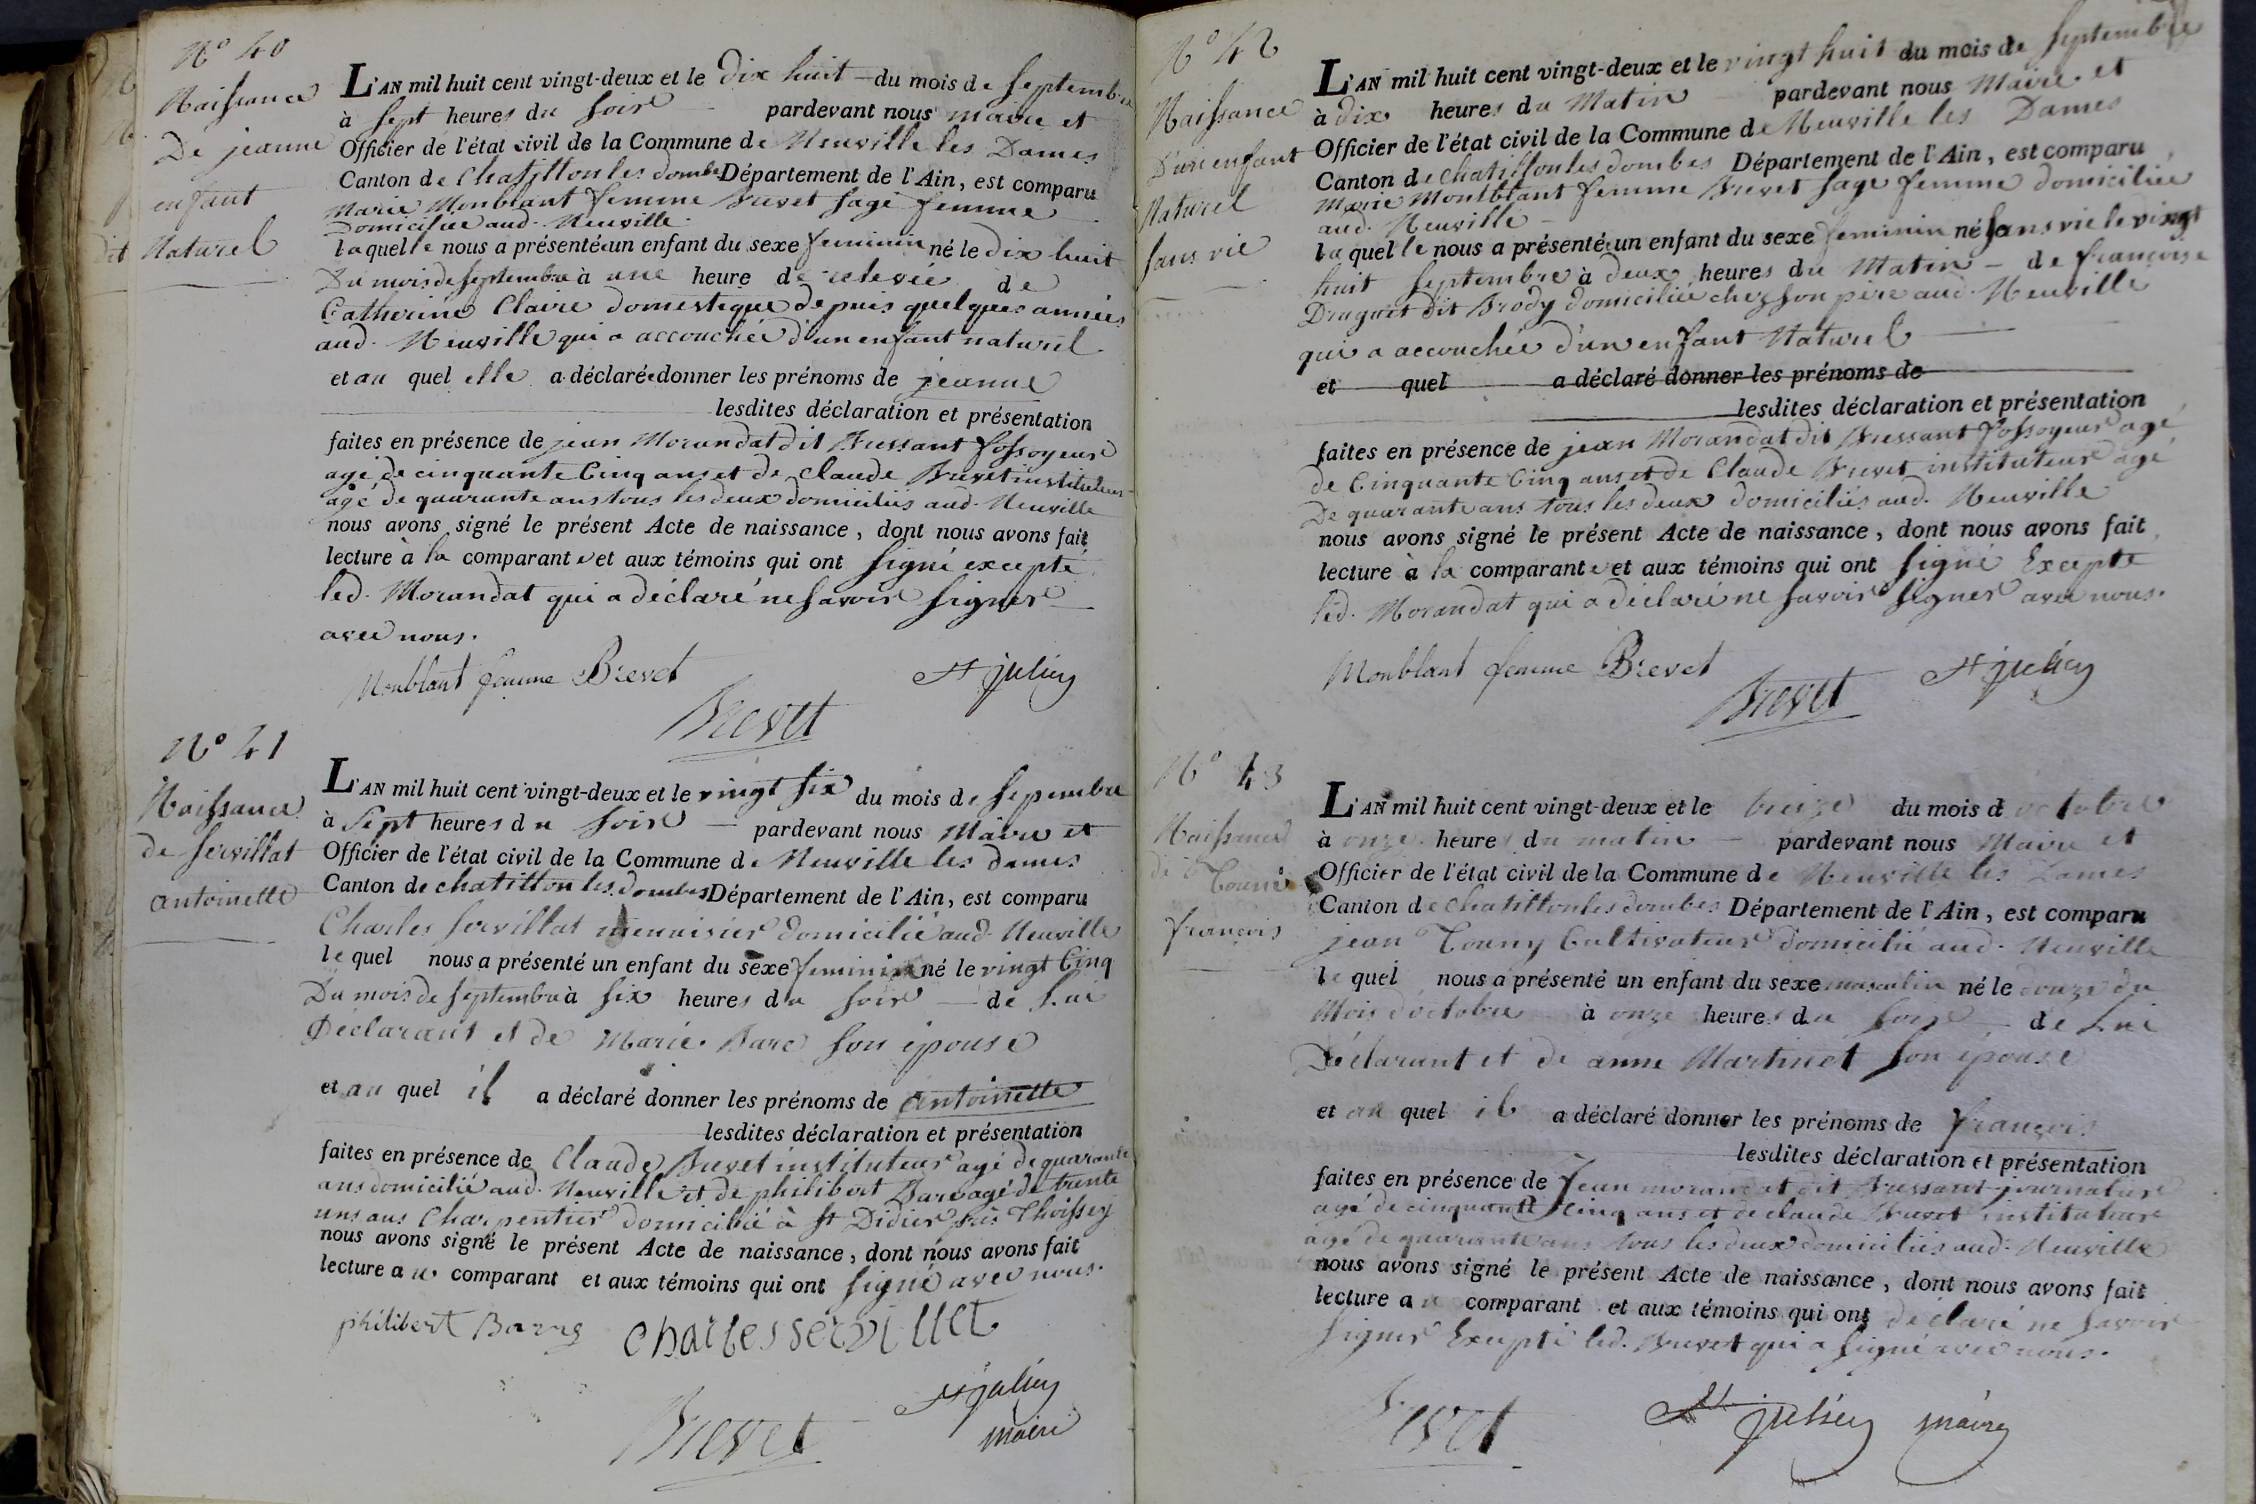 N° 40
Naissance
De jeanne
enfant
Naturel
L'AN mil huit cent vingt-deux et le dix huit – du mois de septembre
à sept heures du soir – pardevant nous maire et
Officier de l'état civil de la Commune de Neuville les Dames
Canton de Chatillon les dombes Département de l'Ain, est comparu
Marie Monblant femme Brevet sage femme
Domiciliée aud. Neuville
laquelle nous a présentée un enfant du sexe feminin né le dix huit
Du mois de septembre à une heure de relevée de
Catherine Claire domestique depuis quelques années
aud. Neuville qui a accouchée d'un enfant naturel
et au quel elle a déclarée donner les prénoms de jeanne
lesdites déclaration et présentation
faites en présence de jean Morandat dit Bressant fossoyeur
agé de cinquante Cinq ans et de Claude Brevet instituteur
agé de quarante ans tous les deux domiciliés aud. Neuville
nous avons signé le présent Acte de naissance, dont nous avons fait
lecture à la comparante et aux témoins qui ont signé excepté
led. Morandat qui a déclaré ne savoir signer
avec nous.
Monblant femme Brevet St julien
Brevet
N° 41
Naissance
de servillat
antoinette
L'AN mil huit cent vingt-deux et le vingt six du mois de sepembre
à sept heures du soir – pardevant nous Maire et
Officier de l'état civil de la Commune de Neuville les dames
Canton de chatillon les dombes Département de l'Ain, est comparu
Charles servillat menuisier domicilié aud. Neuville
lequel nous a présenté un enfant du sexe feminin né le vingt Cinq
Du mois de septembre à six heures du soir – de Lui
Déclarant et de Marie Barc son épouse
et au quel il a déclaré donner les prénoms de antoinette
lesdites déclaration et présentation
faites en présence de Claude Brevet instituteur agé de quarante
ans domicilié aud. Neuville et de philibert Barc agé de trente
uns ans Charpentier domicilié à St Didier près Thoissey
nous avons signé le présent Acte de naissance, dont nous avons fait
lecture au comparant et aux témoins qui ont signé avec nous.
philibert charles servillet
St julien
Brevet maire
N° 42
Naissance
D'un enfant
Naturel
sans vie
L'AN mil huit cent vingt-deux et le vingt huit du mois de septembre
à dix heures du Matin – pardevant nous Maire et
Officier de l'état civil de la Commune de Neuville les Dames
Canton de chatillon les dombes Département de l'Ain, est comparu
Marie Montblant femme Brevet sage femme domiciliée
aud. Neuville –
laquelle nous a présentée un enfant du sexe feminin né sans vie le vingt
huit septembre à deux heures du Matin – de françoise
Druguet dit Brody domiciliée chez son père aud. Neuville
qui a accouchée d'un enfant Naturel
et quel a déclaré donner les prénoms de
lesdites déclaration et présentation
faites en présence de jean Morandat dit Bressant fossoyeur agé
de Cinquante Cinq ans et de Claude Brevet instituteur agé
De quarante ans tous les deux domiciliés aud. Neuville
nous avons signé le présent Acte de naissance, dont nous avons fait
lecture à la comparante et aux témoins qui ont signé Excepté
led. Morandat qui a déclaré ne savoir signer avec nous.
Monblant femme Brevet St julien
Brevet
N° 43
Naissance
de
françois
L'AN mil huit cent vingt-deux et le treize du mois d'octobre
à onze heures du matin – pardevant nous Maire et
Officier de l'état civil de la Commune de Neuville les Dames
Canton de Chatillon les dombes Département de l'Ain, est comparu
jean Touny Cultivateur domicilié aud. Neuville
lequel nous a présenté un enfant du sexe masculin né le du
Mois d'octobre à onze heures du soir – de Lui
Déclarant et de anne Martinet son épouse
et au quel il a déclaré donner les prénoms de françois
lesdites déclaration et présentation
faites en présence de Jean morandat dit Bressant journalier
agé de cinquante Cinq ans et de claude Brevet instituteur
agé de quarante ans tous les deux domiciliés aud. Neuville
nous avons signé le présent Acte de naissance, dont nous avons fait
lecture au comparant et aux témoins qui ont déclaré ne savoir
signer Excepté led. Brevet qui a signé avec nous.
Brevet St julien maire